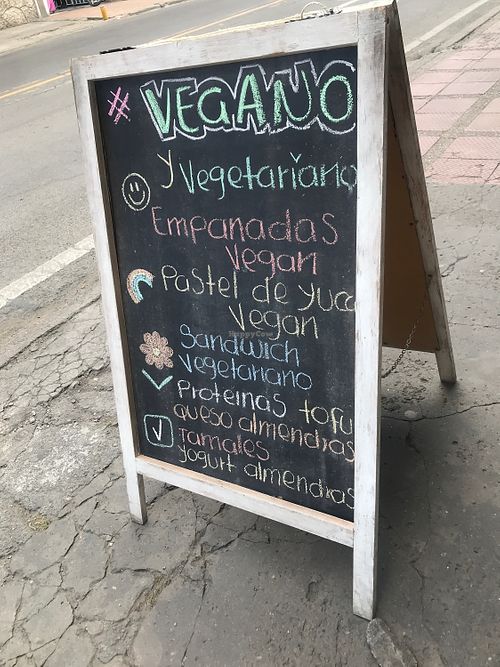 # VEGANO
y Vegetariano
Empanadas
Vegan
Pastel de yuca
Vegan
Sandwich
Vegetariano
Proteinas tofu
queso almendras
Tamales
yogurt almendras
HappyCow